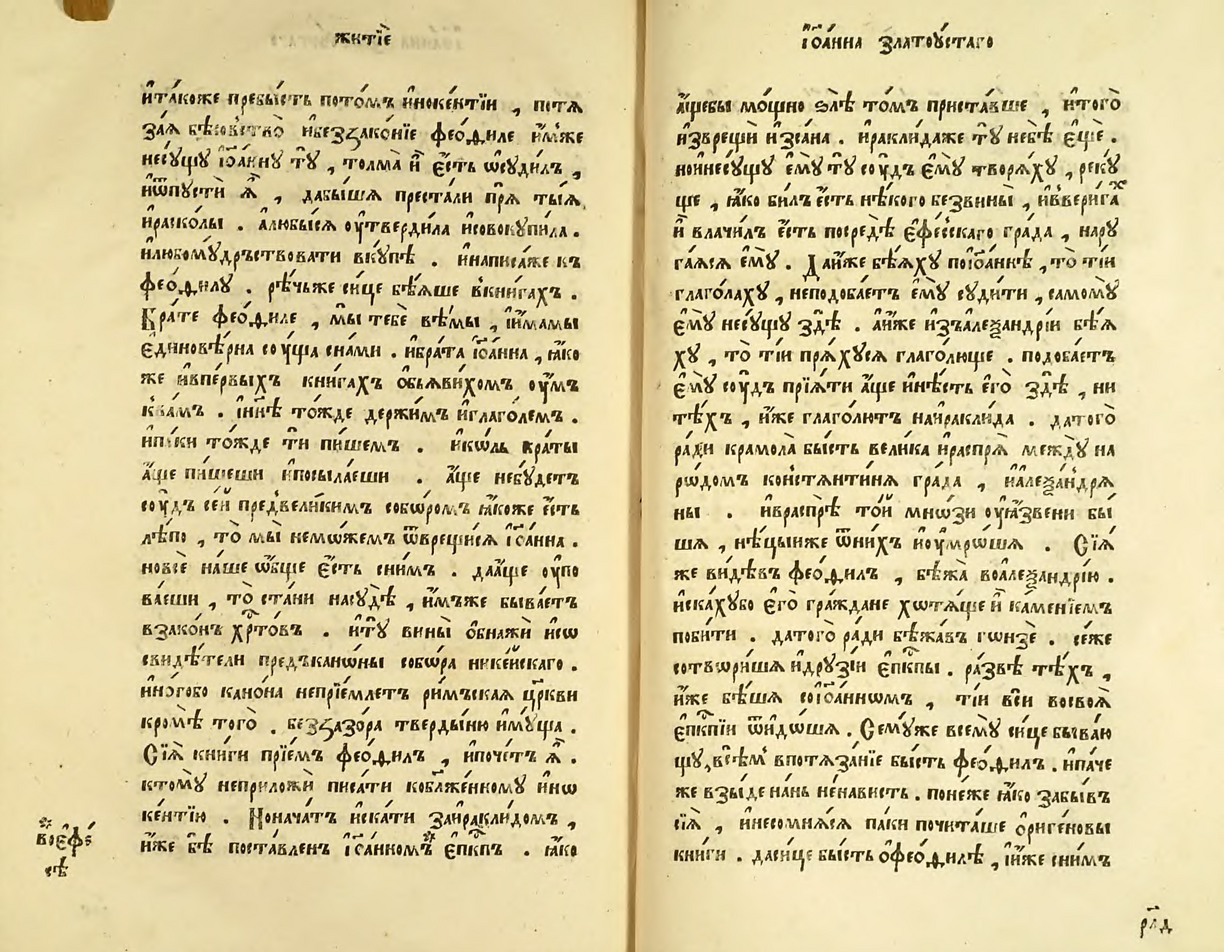 житїѐ
и҆та́коже пребы́сть пото́мъ и҆ноке́нтїи , потѧ
за́ѧ бѣ́ковство̀ и҆беззако́нїе ѳео́ѳиле и҆́мже
несу́щꙋ і҆ѡа́ннꙋ тꙋ̀ , толма̀ и҆̀ є҆́сть ѡ҆суди́лъ ,
и҆ѿпустѝ ѧ҆̀ , дабы́шѧ преста́ли прѧ̀ ты́ѧ
и҆раско́лы . а҆любы́сѧ оу҆тверди́ла и҆совокупи́ла .
и҆любому́дръствовати вку́пѣ . и҆написа́же къ
ѳео́ѳилꙋ . рѣ́чьже си́це бѣ́ѧше в̾кни́гахъ .
Бра́те ѳео́ѳиле , мы̀ тебѐ вѣ́мы , і҆и҆́мамы
є҆динове́рна соу́ща сна́ми . и҆бра́та і҆ѡа́нна , ꙗ҆́ко
же и҆впе́рвыхъ кни́гахъ о҆б̾ꙗви́хомъ оу҆́мъ
ква́мъ . і҆ны́нѣ то́жде держи́мъ и҆глаго́лемъ .
и҆па́ки то́жде тѝ пи́шемъ . и҆ко́ль кра́ты
а҆́ще пи́шеши и҆посыла́еши . а҆́ще небу́детъ
соу́дъ се́й предвели́кимъ собо́ромъ ꙗ҆́коже є҆́сть
лѣ́по , то̀ мы̀ немо́жемъ ѿврещи́сѧ і҆ѡа́нна .
но́все на́ше ѻ҆́бще є҆́сть сни́мъ . даа҆́ще оу҆по
ва́еши , то̀ ста́ни насу́дѣ , и҆́мъже быва́етъ
взако́нъ хрⷭ҇то́въ . и҆тꙋ̀ вины̀ о҆бнажѝ и҆со
свидѣ́тели предъкано́ны собо́ра нике́йскаго .
и҆но́гобо кано́на непрїе́млетъ ри́мъскаѧ цр҃кви
кромѣ̀ того̀ . беззазо́ра тверды́ню и҆му́ща .
Сїѧ̀ кни́ги прїе́мъ ѳео́ѳилъ , и҆почте́тъ ѧ҆̀ .
ктому̀ неприложѝ писа́ти кобл҃же́нномꙋ и҆но
ке́нтїю . Нонача́тъ и҆ска́ти заи҆ракли́домъ ,
и҆́же бѣ̀ поста́вленъ і҆ѡа́нномъ* є҆пⷭ҇кпъ . ꙗ҆́ко
* во є҆фе́
сѣ
і҆ѡа́нна златоу́стаго
а҆́щебы мо́щно ѕлѣ̀ то́мъ приста́вше , и҆того̀
и҆зврещѝ и҆зса́на . и҆ракли́даже тꙋ̀ небѣ̀ є҆щѐ .
нои҆несу́щꙋ є҆мꙋ̀ тꙋ̀ соу́дъ є҆мꙋ̀ творѧ́хꙋ , реку́
ще , ꙗ҆́ко би́лъ є҆́сть нѣ́кого безвины̀ , и҆ввери́гахъ
и҆̀ влачи́лъ є҆́сть посредѣ̀ є҆фе́сскаго гра́да , нару
га́ѧсѧ є҆мꙋ̀ . Даи҆́же бѣ́ѧхꙋ поі҆ѡа́ннѣ , то̀ ті́и
глаго́лахꙋ , неподоба́етъ є҆мꙋ̀ суди́ти , самомꙋ̀
є҆мꙋ̀ несу́щꙋ здѣ̀ . аи҆́же и҆зъалеѯандрі́и бѣ́ѧ
хꙋ , то̀ ті́и прѧ́хусѧ глаго́люще . подоба́етъ
є҆мꙋ̀ соу́дъ прїѧ́ти а҆́ще и҆нѣ́сть є҆го̀ здѣ̀ , ни
тѣ́хъ , и҆́же глаго́лютъ наи҆ракли́да . датого̀
ра́ди крамола̀ бы́сть вели́ка и҆распрѧ̀ междꙋ̀ на
ро́домъ констѧнти́нѧ гра́да , и҆алеѯа́ндрѧ
ны . и҆враспрѣ̀ то́й мно́зи оу҆ꙗ́звени бы́
шѧ , нѣ́цыиже ѿни́хъ и҆оу҆мро́шѧ . Сїѧ̀
же ви́дѣвъ ѳео́ѳилъ , бѣжа̀ воалеѯандрі́ю .
и҆ска́хубо є҆го̀ гра́ждане хотѧ́ще и҆̀ ка́менїемъ
поби́ти . датого̀ ра́ди бѣжа́въ го́нзе . се́же
сотвори́шѧ и҆друзі́и є҆пⷭ҇кпы . ра́звѣ тѣ́хъ ,
и҆́же бѣ́шѧ соі҆ѡа́нномъ , ті́и всѝ восвоѧ̀
є҆пⷭ҇кпїи ѿидо́шѧ . Сему́же всемꙋ̀ си́це быва́ю
щꙋ , всѣ́мъ впотѧза́нїе бы́сть ѳео́ѳилъ . и҆па́че
же взы́де на́нь не́нависть . поне́же ꙗ҆́ко забы́въ
сїѧ̀ , и҆несомнѧ́сѧ па́ки почита́ше ѻ҆риге́новы
кни́ги . даси́це бы́сть о҆ѳео́ѳилѣ , і҆и҆́же сни́мъ
рл҃д